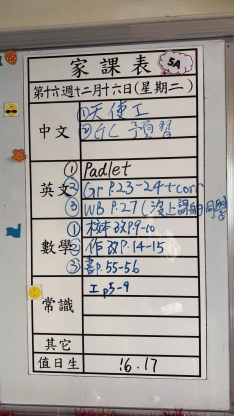 家課表 5A
第十六週十二月十六日(星期二)
中文
①天使工
② 預習
英文
① Padlet
② Gr P.23-24+corr
③ WB P.27(沒上課的同學
數學
① 校本改P.9-10
② 作改P.14-15
③ 書P.55-56
常識
工p5-9
其它
值日生 16.17